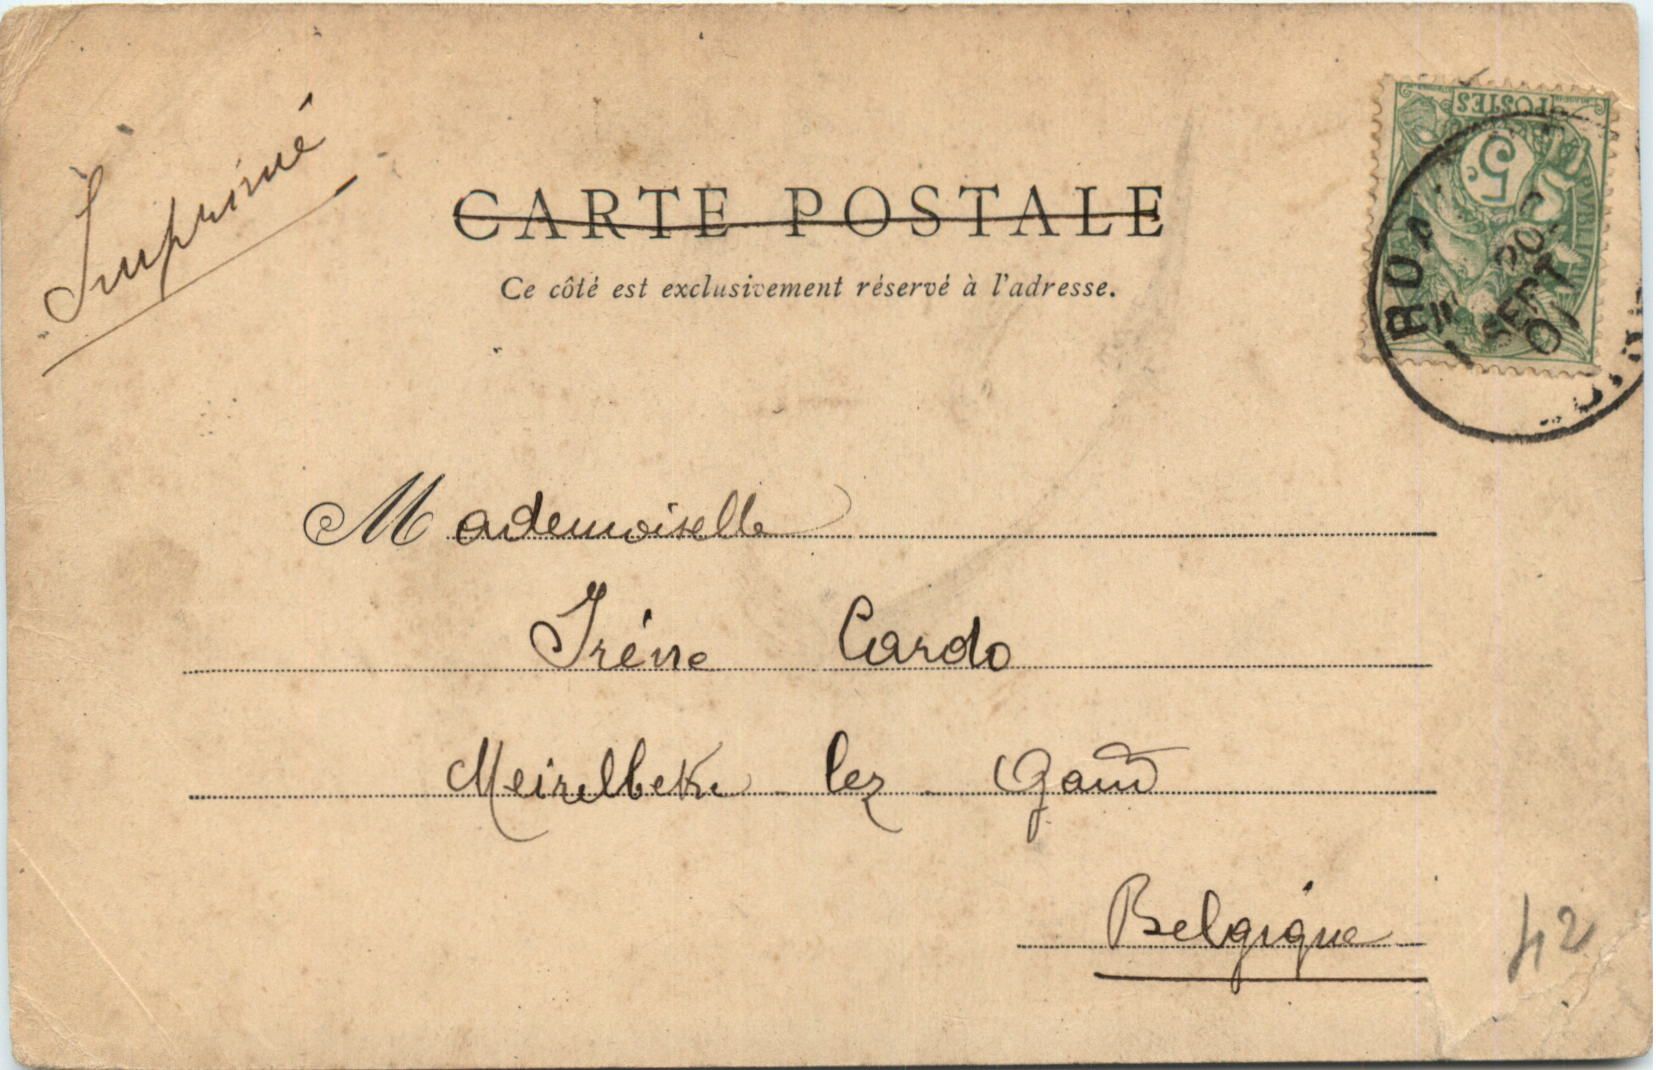 Imprimé
CARTE POSTALE
Ce côté est exclusivement réservé à l'adresse.
POSTES
5c
20
SEPT
01
Mademoiselle
Iréne Cardo
Meirelbeke lez Gand
Belgique
42